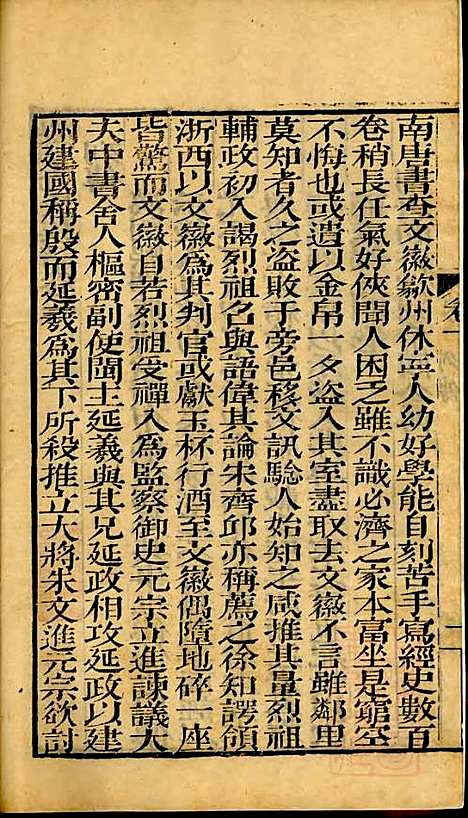 南唐書查文徽歙州休寧人幼好學能自刻苦手寫經史數百
卷稍長任氣好俠聞人困乏雖不識必濟之家本富坐是窮空
不悔也或遺以金帛一夕盜入其室盡取去文徽不言雖鄰里
莫知者久之盜敗于旁邑移文訊驗人始知之咸推其量烈祖
輔政初入謁烈祖名與語偉其論宋齊邱亦稱薦之徐知諤領
浙西以文徽爲其判官或獻玉杯行酒至文徽偶墮地碎一座
皆驚而文徽自若烈祖受禪入爲監察御史元宗立進諫議大
夫中書舍人樞密副使閩主延羲與其兄延政相攻延政以建
州建國稱殷而延羲爲其下所殺推立大將朱文進元宗欲討